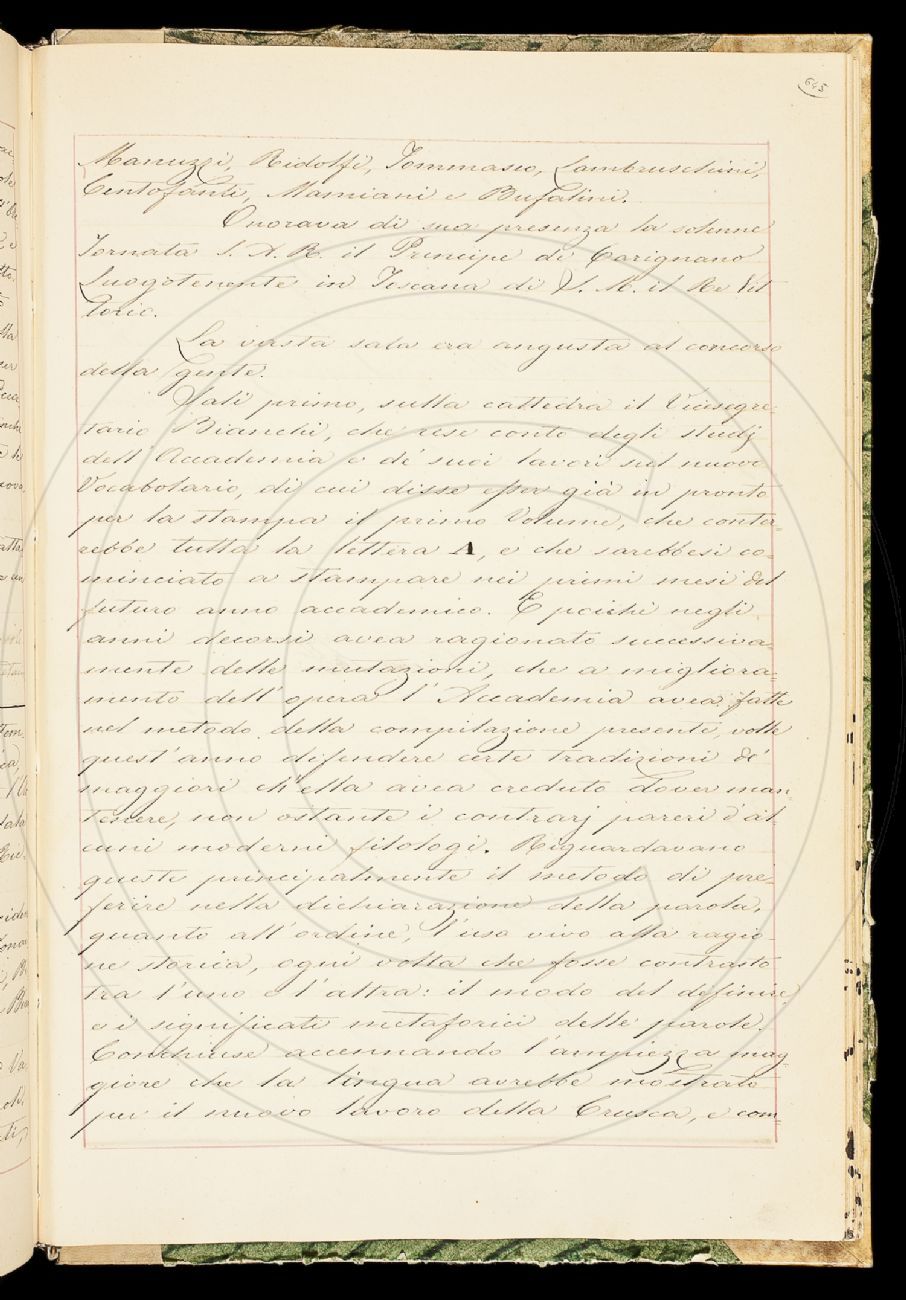 645
Manuzzi, Ridolfi, Tommaseo, Lambruschini,
Centofanti, Mamiani e Bufalini.
Onorava di sua presenza la solenne
Tornata S. A. R. il Principe di Carignano
Luogotenente in Toscana di S. M. il Re Vit
torio.
La vasta sala era angusta al concorso
della gente.
Salì primo, sulla cattedra il Vicesegre-
tario Bianchi, che rese conto degli studj
dell'Accademia e de' suoi lavori sul nuovo
Vocabolario, di cui disse esser già in pronto
per la stampa il primo Volume, che conter-
rebbe tutta la lettera A, e che sarebbesi co-
minciato a stampare nei primi mesi del
futuro anno accademico. E poichè negli
anni decorsi avea ragionato successiva-
mente delle mutazioni, che a migliora-
mento dell'opera l'Accademia avea fatte
nel metodo della compilazione presente, volle
quest'anno difendere certe tradizioni de'
maggiori ch'ella avea creduto dover man-
tenere, non ostante i contrarj pareri d'al-
cuni moderni filologi. Riguardavano
queste principalmente il metodo di pre-
ferire nella dichiarazione della parola,
quanto all'ordine, l'uso vivo alla ragio-
ne storica, ogni volta che fosse contrasto
tra l'uno e l'altra: il modo del definire
e i significati metaforici delle parole.
Conchiuse accennando l'ampiezza mag-
giore che la lingua avrebbe mostrato
per il nuovo lavoro della Crusca, e com-